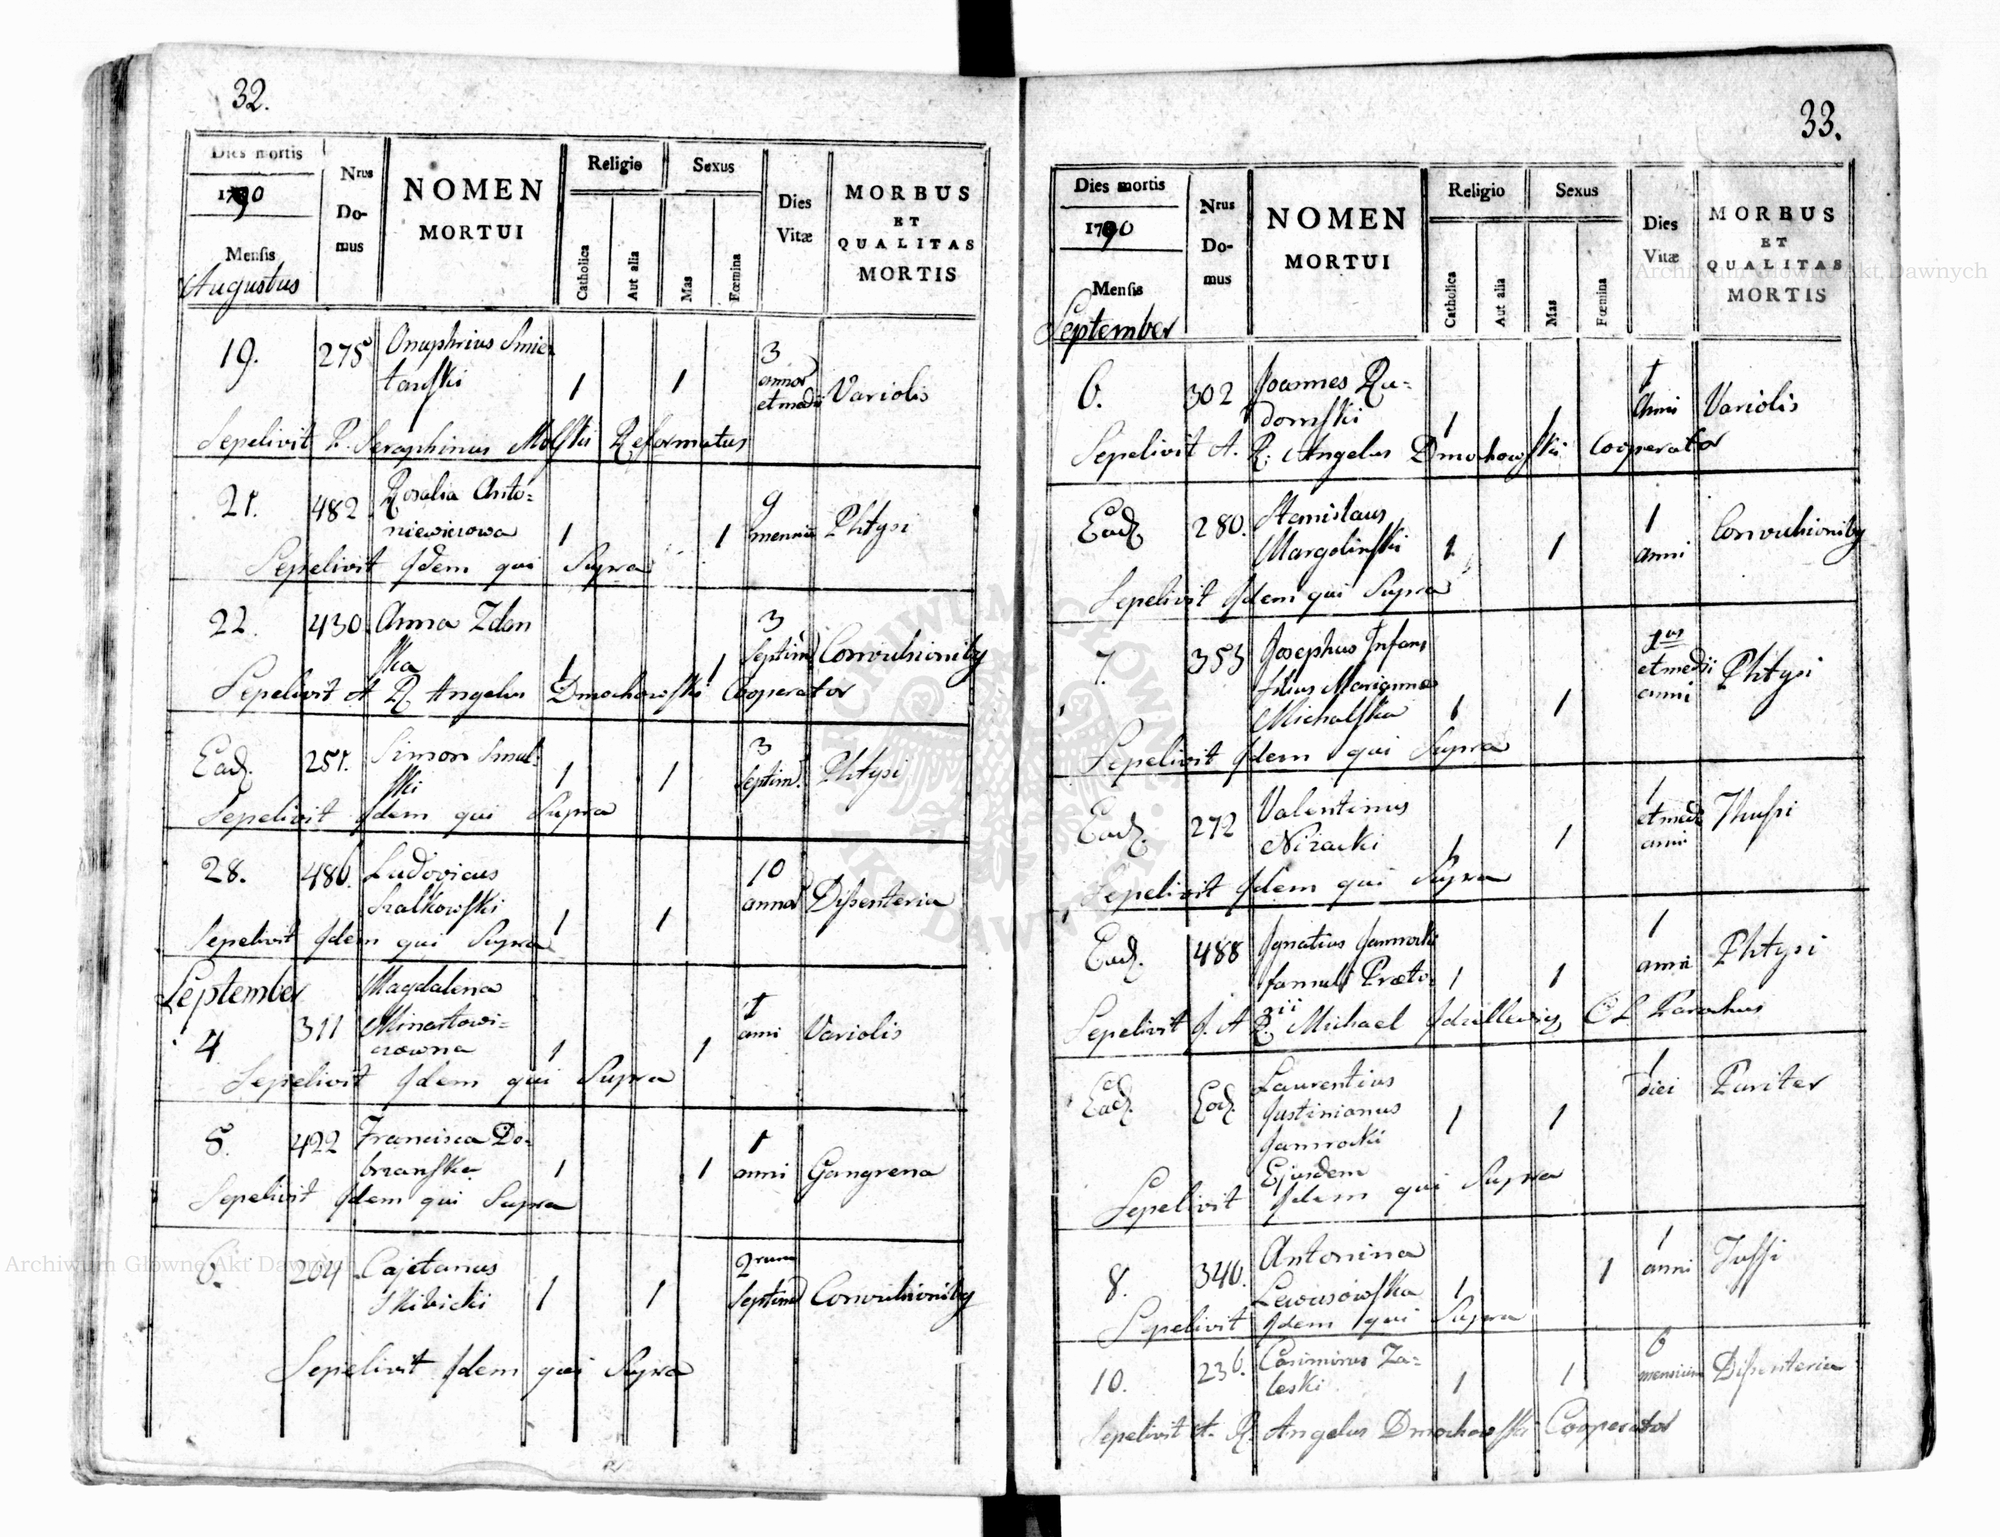 32.
Dies mortis
1790
Mensis
Augustus
Nrus
Do-
mus
NOMEN
MORTUI
Religio
Catholica
Aut alia
Sexus
Mas
Fœmina
Dies
Vitæ
MORBUS
ET
QUALITAS
MORTIS
19. 275 Onuphrius Smie
tański 1 1 3 annor et medii Variolis
Sepelivit P. Seraphinus Molski Reformatus
21. 482 Rosalia Anto=
niewiczowa 1 1 9 mensiū Phtysi
Sepelivit Idem qui Supra
22. 430. Anna Zdan
ska 1 1 3 Septim Convulsioniby
Sepelivit A R Angelus Dmochowski Cooperator
Ead. 251. Simon Smul-
ski 1 1 3 Septim. Phtysi
Sepelivit Idem qui Supra
28. 486. Ludovicus
Szalkowski 1 1 10 annor Dissenteria
Sepelivit Idem qui Supra
September
4 311 Magdalena
Minastowi=
czowna 1 1 1 anni Variolis
Sepelivit Idem qui Supra
5. 422 Francisca Do-
brzanska 1 1 1 anni Gangrena
Sepelivit Idem qui Supra
6. 204 Cajetanus
Skibicki 1 1 2rum Septim Convulsioniby
Sepelivit Idem qui Supra
33.
Dies mortis
1790
Mensis
September
Nrus
Do-
mus
NOMEN
MORTUI
Religio
Catholica
Aut alia
Sexus
Mas
Fœmina
Dies
Vitæ
MORBUS
ET
QUALITAS
MORTIS
6. 302 Joannes Ra=
domski 1 1 1 Anni Variolis
Sepelivit A. R. Angelus Dmochowski Cooperator
Ead. 280. Stanislaus
Margolinski 1 1 1 anni Convulsioniby
Sepelivit Idem qui Supra
7. 353 Josephus Infans
filius Marianna
Michalska 1 1 1us et medii anni Phtysi
Sepelivit Idem qui Supra
Ead. 272 Valentinus
Nizacki 1 1 1 et medii anni Thussi
Sepelivit Idem qui Supra
Ead. 488 Ignatius Jamrocki
famuli Præto
rii 1 1 1 anni Phtysi
Sepelivit J. A R. Michael C L Parochus
Ead. Eod. Laurentius
Justinianus
Jamrocki
Ejusdem 1 1 1 diei Pariter
Sepelivit Idem qui Supra
8. 340. Antonina
Lewusowska 1 1 1 anni Tussi
Sepelivit Idem qui Supra
10. 236. Casimirus Za=
leski 1 1 6 mensium Dissenteria
Sepelivit A. R. Angelus Dmochowski Cooperator
Archiwum Główne Akt Dawnych
Archiwum Główne Akt Dawnych
ARCHIWUM GŁÓWNE AKT DAWNYCH